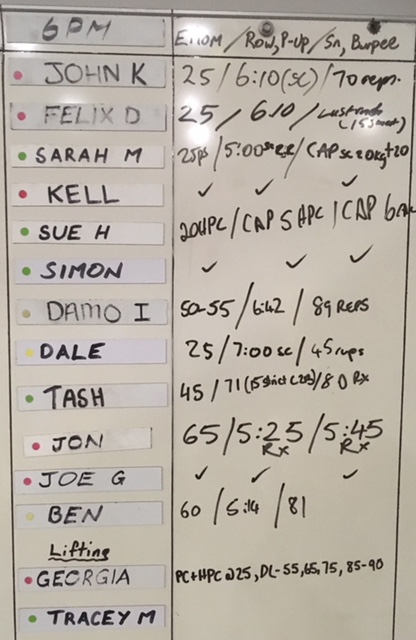 6PM EMOM / Row, P-up / Sn, Burpee
JOHN K 25 / 6:10 (sc) / 70 reps.
FELIX D 25 / 610 /
SARAH M / 5:00 / CAP sc 20kg +20
KELL ✓ ✓ ✓
SUE H 20HPC / CAP 5 HPC / CAP
SIMON ✓ ✓ ✓
DAMO I 50-55 / 6:42 / 89 REPS
DALE 25 / 7:00 sc / 45 reps
TASH 45 / 71 / 80 Rx
JON 65 / 5:25 Rx / 5:45 Rx
JOE G ✓ ✓ ✓
BEN 60 / 5:14 / 81
Lifting
GEORGIA PC+HPC @25, DL-55, 65, 75, 85-90
TRACEY M